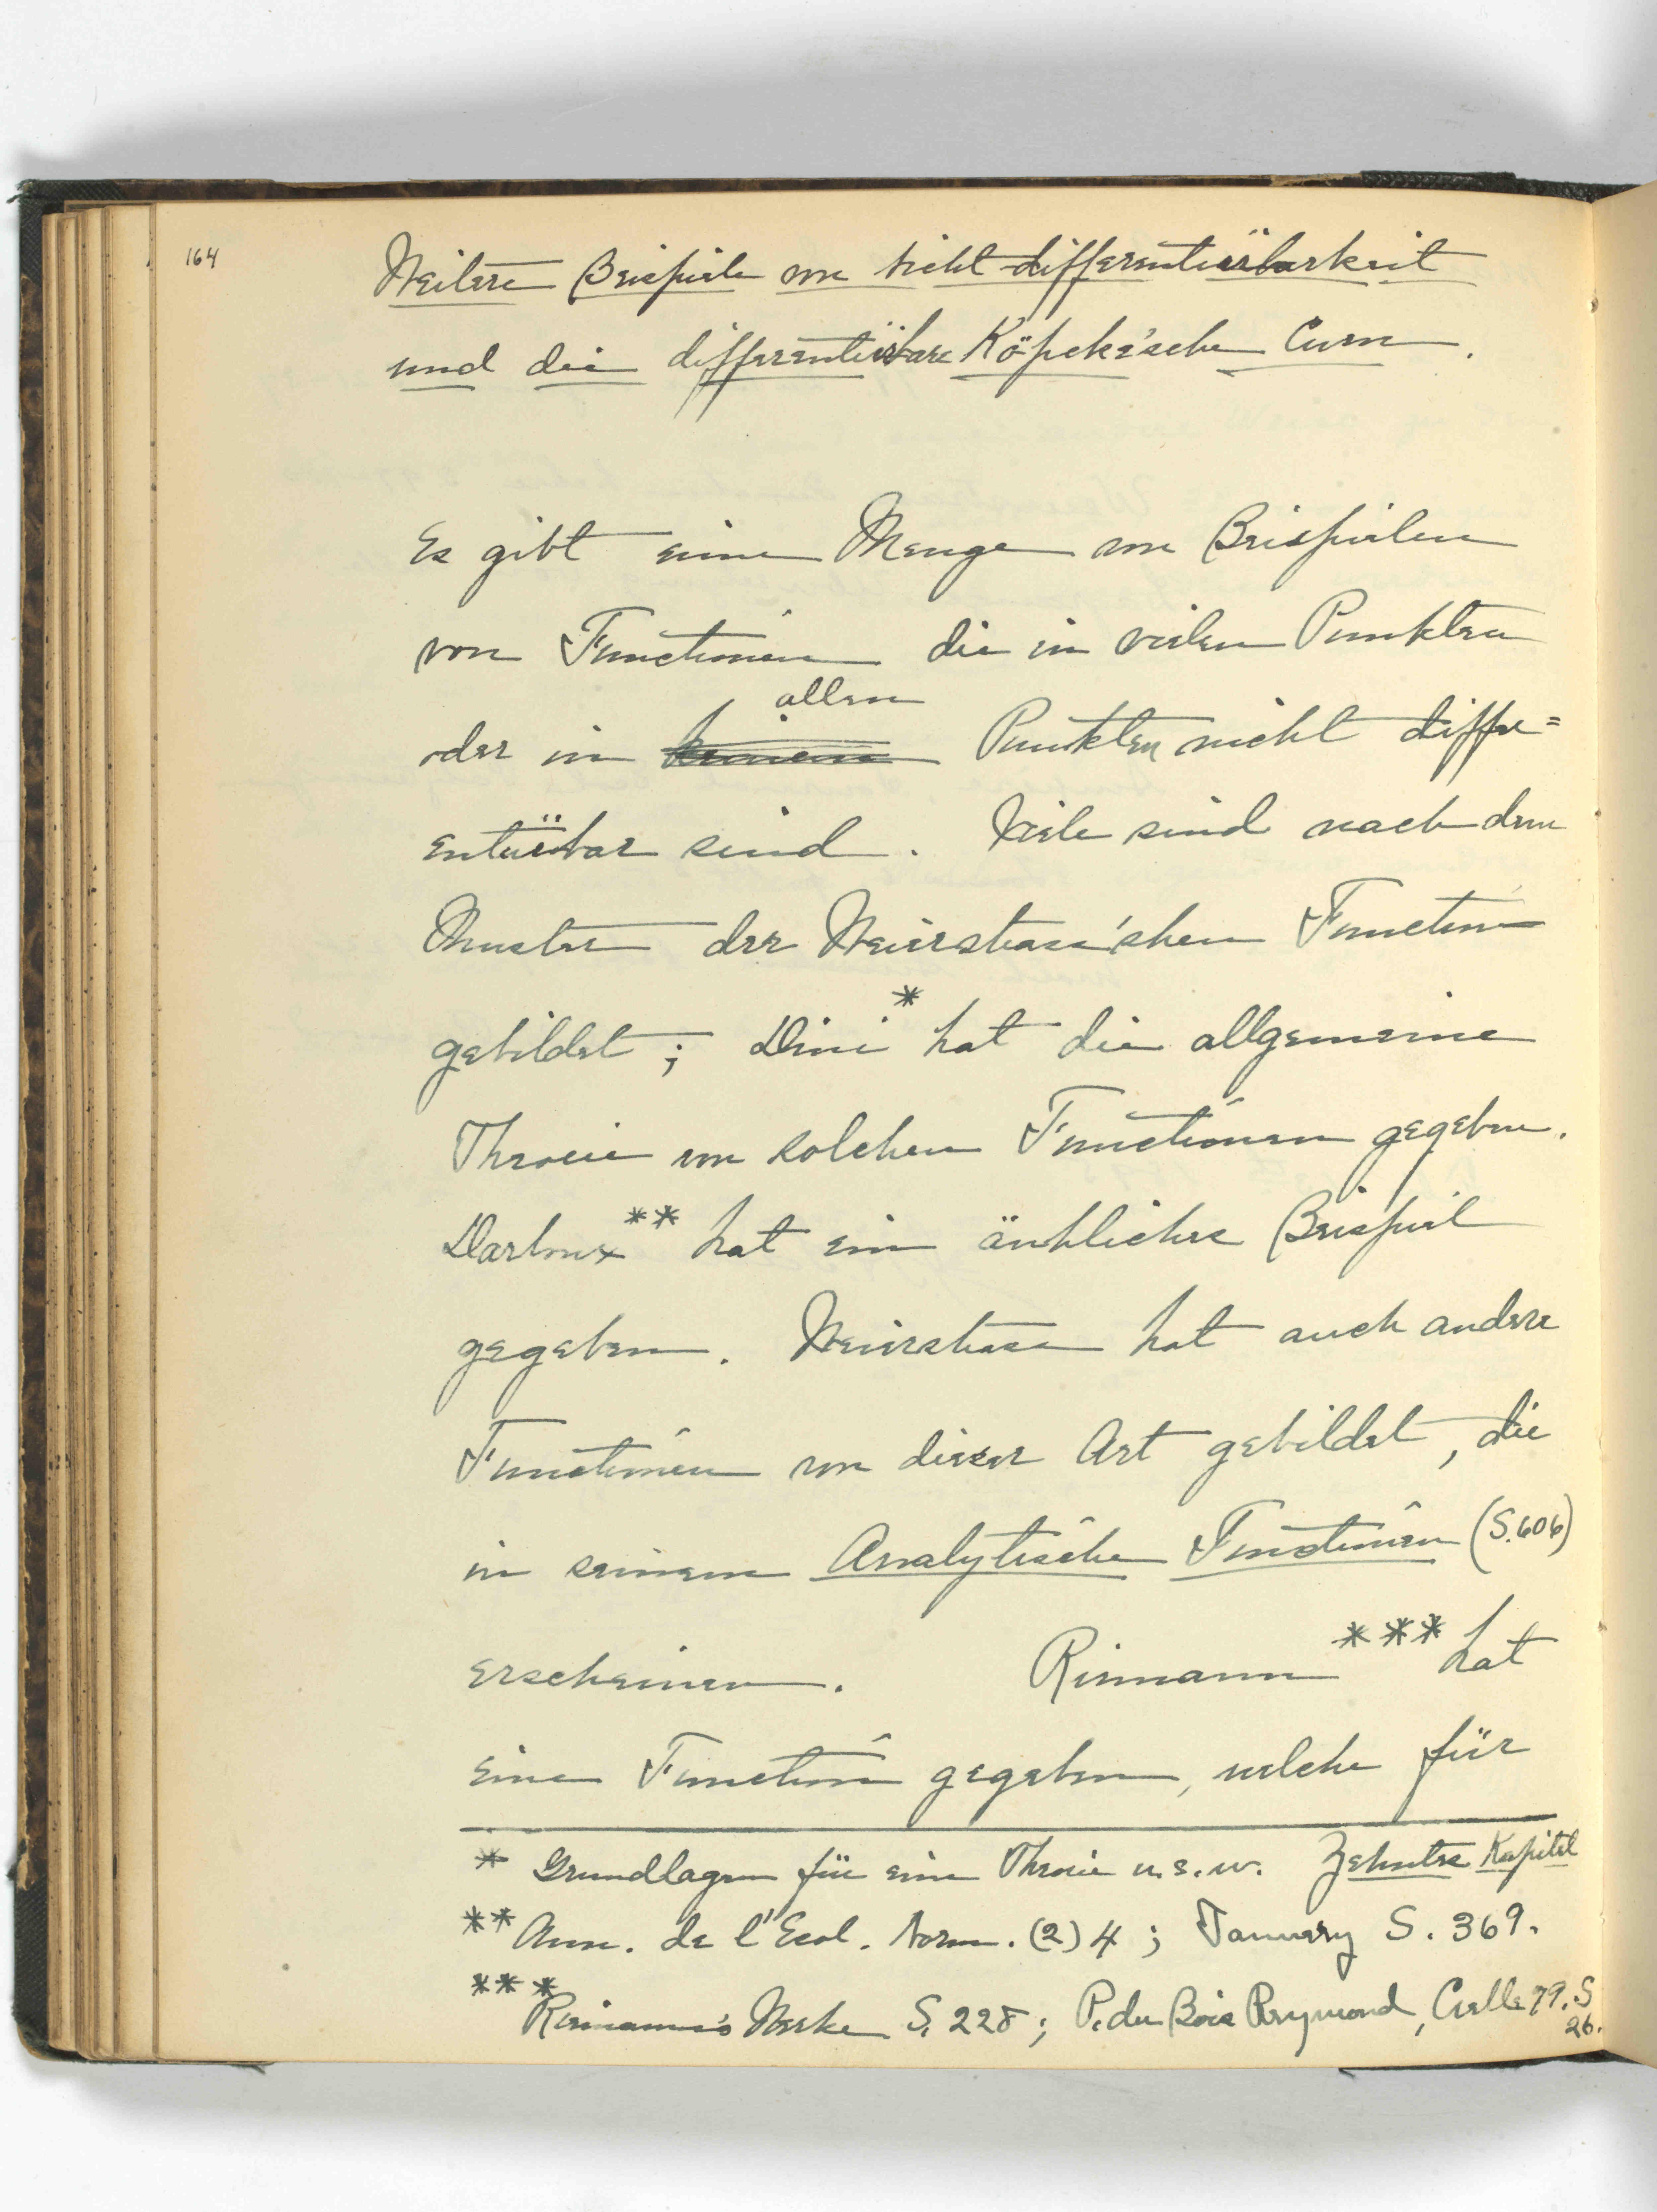 164
Weitere Beispiele von nicht-differentiirbarkeit
und die differentiirbare Köpcke'sche Curve.
Es gibt eine Menge von Beispielen
von Functionen die in vielen Punkten
allen
oder in keinem Punkten nicht diffe=
entiirbar sind. Viele sind nach dem
Muster der Weierstrass'shen Function
gebildet; Dini* hat die allgemeine
Theorie von solchen Functionen gegeben.
Darboux** hat ein änhliches Beispiel
gegeben. Weierstrass hat auch andere
Functionen von dieser Art gebildet, die
in seinem Analytische Functionen (S.606)
erscheinen. Riemann*** hat
eine Function gegeben, welche für
* Grundlagen für eine Theorie u.s.w. Zehntes Kapitel
** Ann. de l'Ecol. Norm. (2) 4; Tannery S. 369.
*** Riemann's Werke S. 228; P. du Bois Reymond, Crelle 79. S
26.